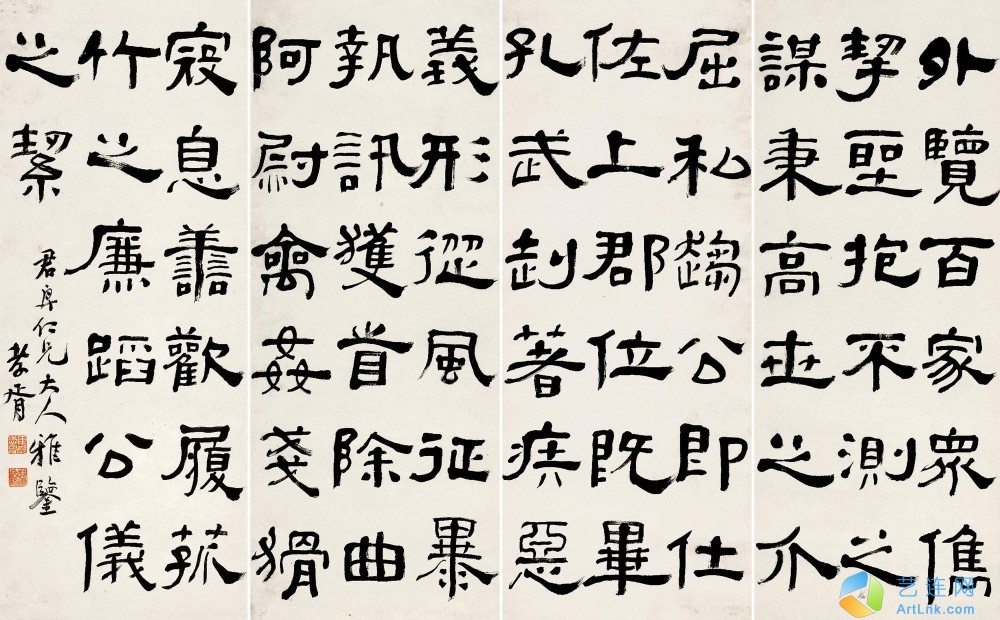 外覽百家眾儁
挈聖抱不測之
謀秉高世之介
屈私趨公即仕
佐上郡位既畢
孔武赳著疾惡
義形從風征暴
執訊獲首除曲
阿尉禽姦戔猾
寇息善歡履菰
竹之廉蹈公儀
之絜
君仁兄大人雅鑒
孝胥
艺连网
ArtLnk.com